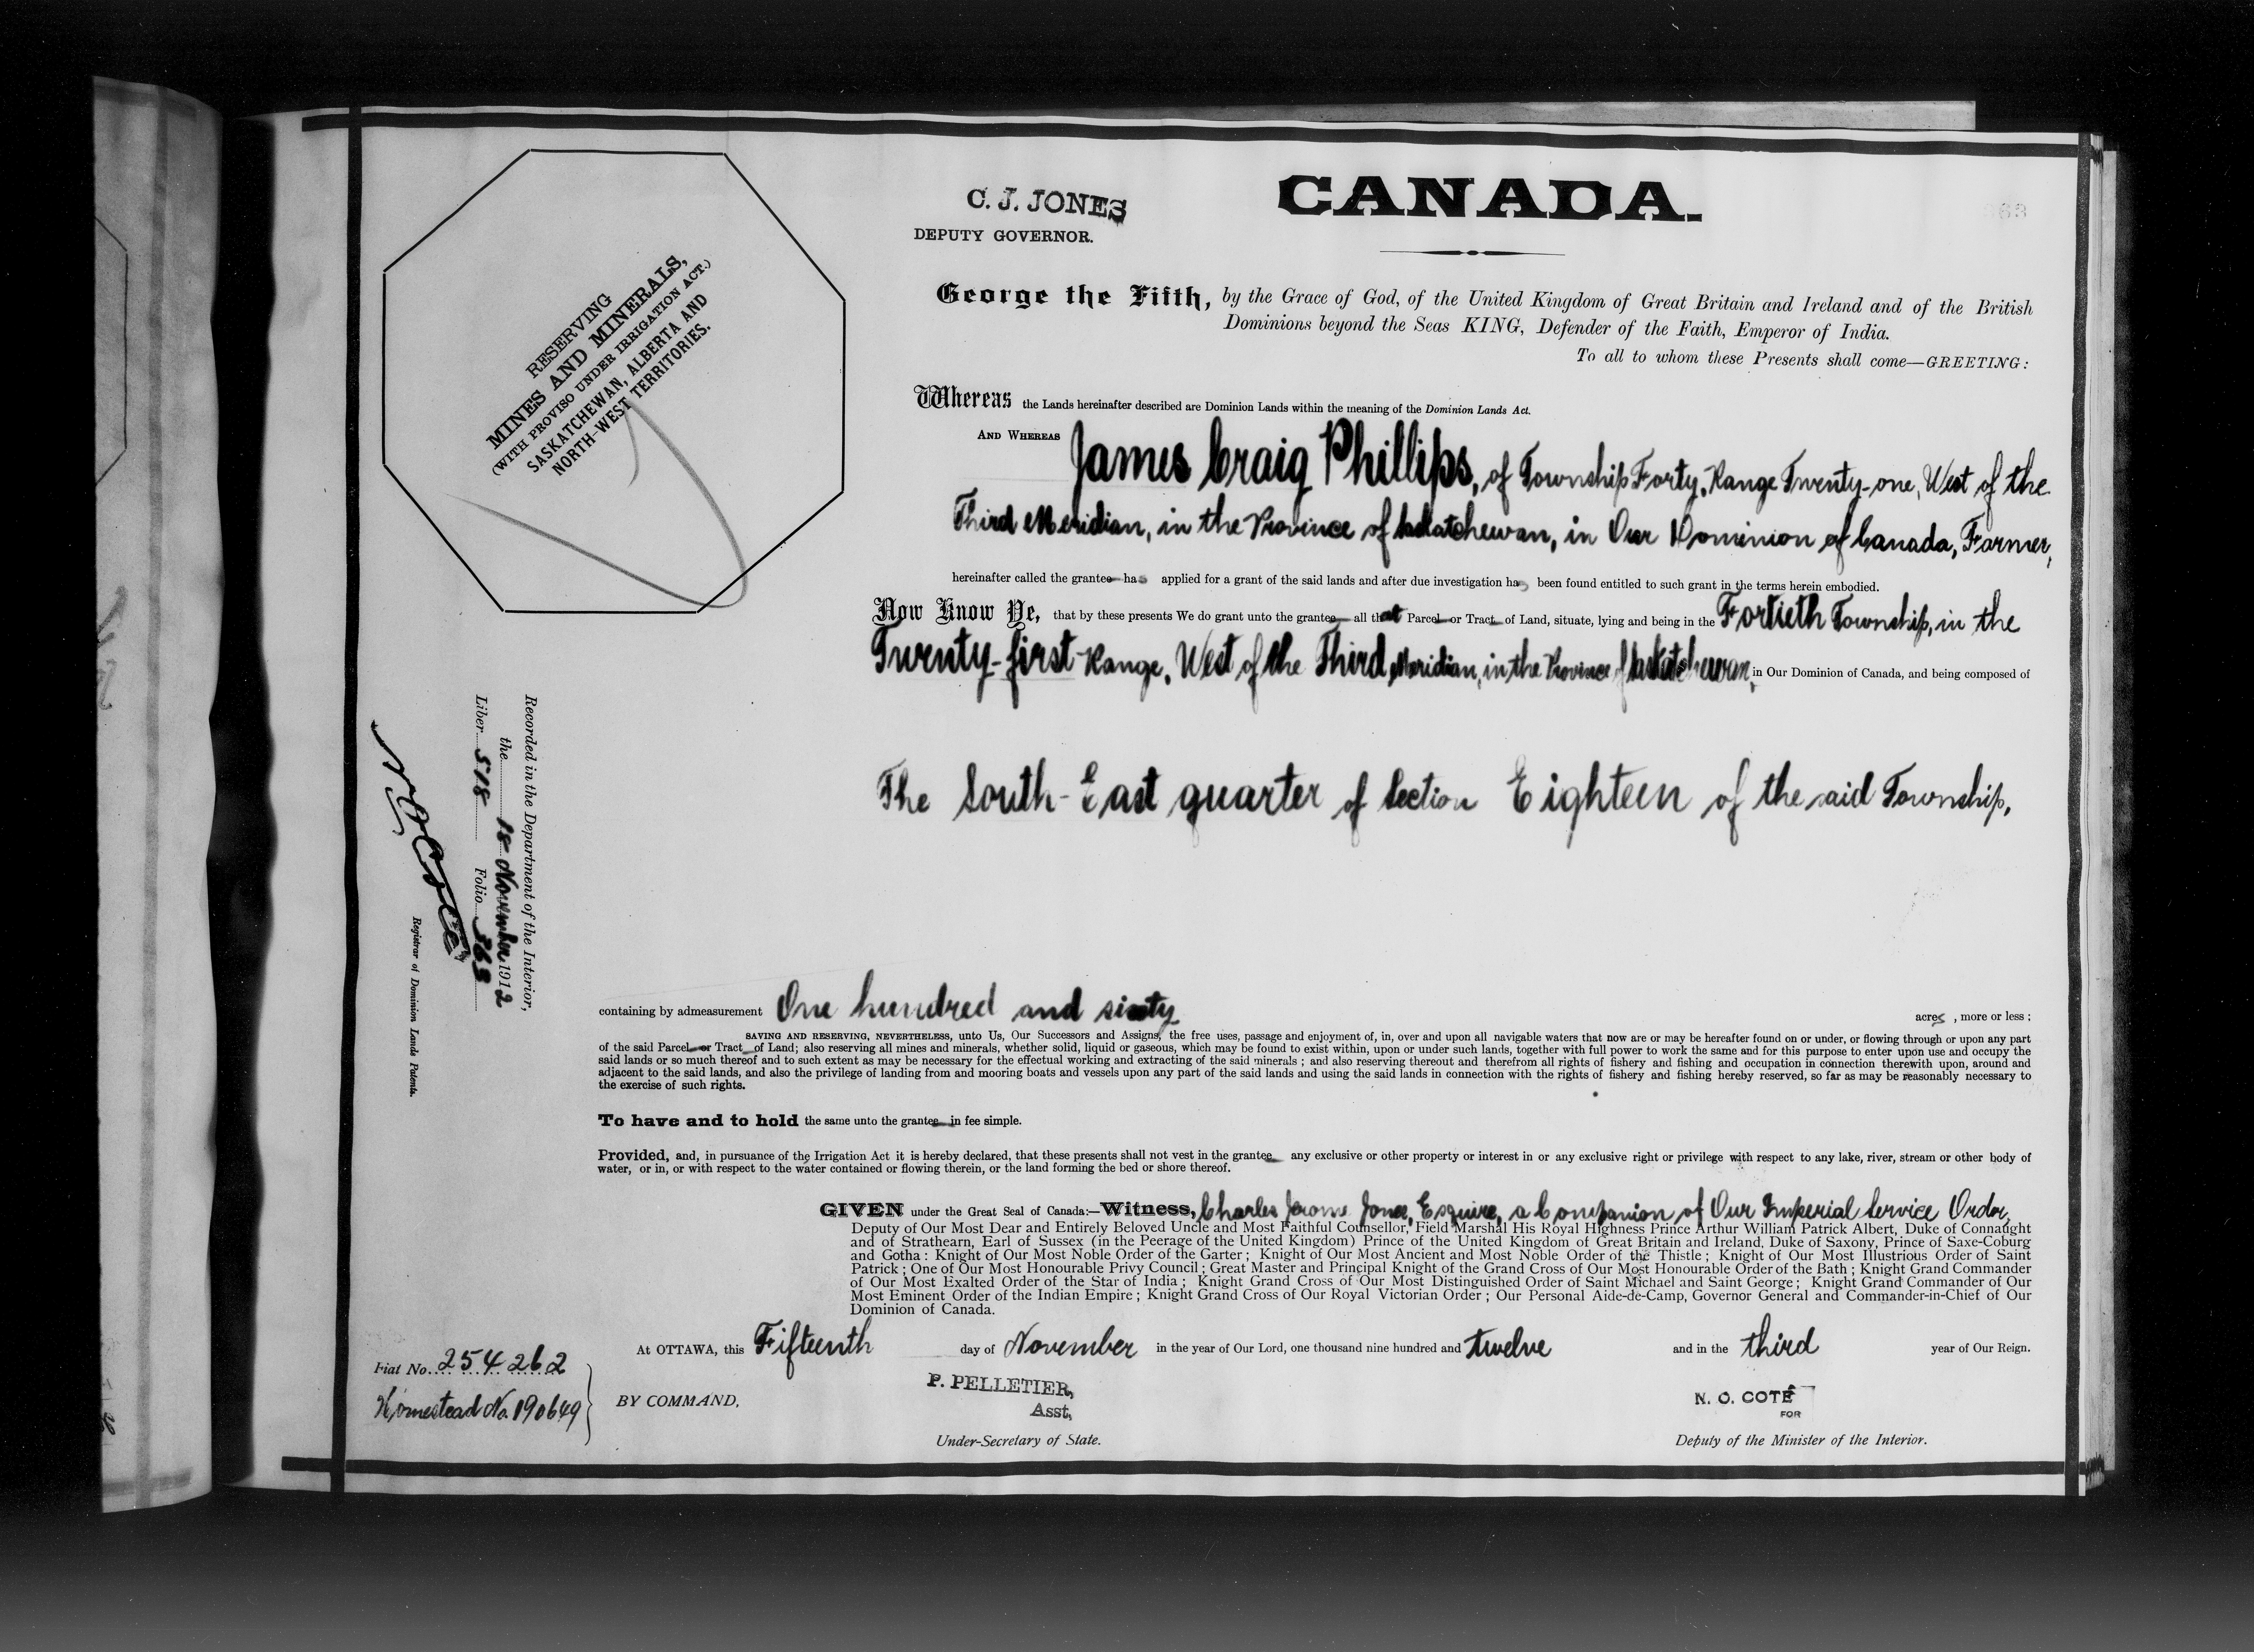 C. J. JONES
DEPUTY GOVERNOR.
CANADA.
RESERVING
MINES AND MINERALS,
(WITH PROVISO UNDER IRRIGATION ACT.)
SASKATCHEWAN, ALBERTA AND
NORTH-WEST TERRITORIES.
George the Fifth, by the Grace of God, of the United Kingdom of Great Britain and Ireland and of the British
Dominions beyond the Seas KING, Defender of the Faith, Emperor of India.
To all to whom these Presents shall come—GREETING:
Whereas the Lands hereinafter described are Dominion Lands within the meaning of the Dominion Lands Act.
AND WHEREAS James Craig Phillips, of Township Forty, Range Twenty-one, West of the
Third Meridian, in the Province of Saskatchewan, in Our Dominion of Canada, Farmer,
hereinafter called the grantee has applied for a grant of the said lands and after due investigation has been found entitled to such grant in the terms herein embodied.
Now Know Ye, that by these presents We do grant unto the grantee all that Parcel or Tract of Land, situate, lying and being in the Fortieth Township, in the
Twenty-first Range, West of the Third Meridian, in the Province of Saskatchewan, in Our Dominion of Canada, and being composed of
The South-East quarter of Section Eighteen of the said Township,
Recorded in the Department of the Interior,
the 18 November 1912
Liber 518 Folio 363
N O Coté
Registrar of Dominion Lands Patents.
containing by admeasurement One hundred and sixty acres, more or less;
SAVING AND RESERVING, NEVERTHELESS, unto Us, Our Successors and Assigns, the free uses, passage and enjoyment of, in, over and upon all navigable waters that now are or may be hereafter found on or under, or flowing through or upon any part
of the said Parcel or Tract of Land; also reserving all mines and minerals, whether solid, liquid or gaseous, which may be found to exist within, upon or under such lands, together with full power to work the same and for this purpose to enter upon use and occupy the
said lands or so much thereof and to such extent as may be necessary for the effectual working and extracting of the said minerals; and also reserving thereout and therefrom all rights of fishery and fishing and occupation in connection therewith upon, around and
adjacent to the said lands, and also the privilege of landing from and mooring boats and vessels upon any part of the said lands and using the said lands in connection with the rights of fishery and fishing hereby reserved, so far as may be reasonably necessary to
the exercise of such rights.
To have and to hold the same unto the grantee in fee simple.
Provided, and, in pursuance of the Irrigation Act it is hereby declared, that these presents shall not vest in the grantee any exclusive or other property or interest in or any exclusive right or privilege with respect to any lake, river, stream or other body of
water, or in, or with respect to the water contained or flowing therein, or the land forming the bed or shore thereof.
GIVEN under the Great Seal of Canada:—Witness, Charles Jerome Jones, Esquire, a Companion of Our Imperial Service Order,
Deputy of Our Most Dear and Entirely Beloved Uncle and Most Faithful Counsellor, Field Marshal His Royal Highness Prince Arthur William Patrick Albert, Duke of Connaught
and of Strathearn, Earl of Sussex (in the Peerage of the United Kingdom) Prince of the United Kingdom of Great Britain and Ireland, Duke of Saxony, Prince of Saxe-Coburg
and Gotha: Knight of Our Most Noble Order of the Garter; Knight of Our Most Ancient and Most Noble Order of the Thistle; Knight of Our Most Illustrious Order of Saint
Patrick; One of Our Most Honourable Privy Council; Great Master and Principal Knight of the Grand Cross of Our Most Honourable Order of the Bath; Knight Grand Commander
of Our Most Exalted Order of the Star of India; Knight Grand Cross of Our Most Distinguished Order of Saint Michael and Saint George; Knight Grand Commander of Our
Most Eminent Order of the Indian Empire; Knight Grand Cross of Our Royal Victorian Order; Our Personal Aide-de-Camp, Governor General and Commander-in-Chief of Our
Dominion of Canada.
At OTTAWA, this Fifteenth day of November in the year of Our Lord, one thousand nine hundred and twelve and in the third year of Our Reign.
Fiat No. 254262
Homestead No. 190649
BY COMMAND,
P. PELLETIER,
Asst,
Under-Secretary of State.
N. O. COTÉ
FOR
Deputy of the Minister of the Interior.